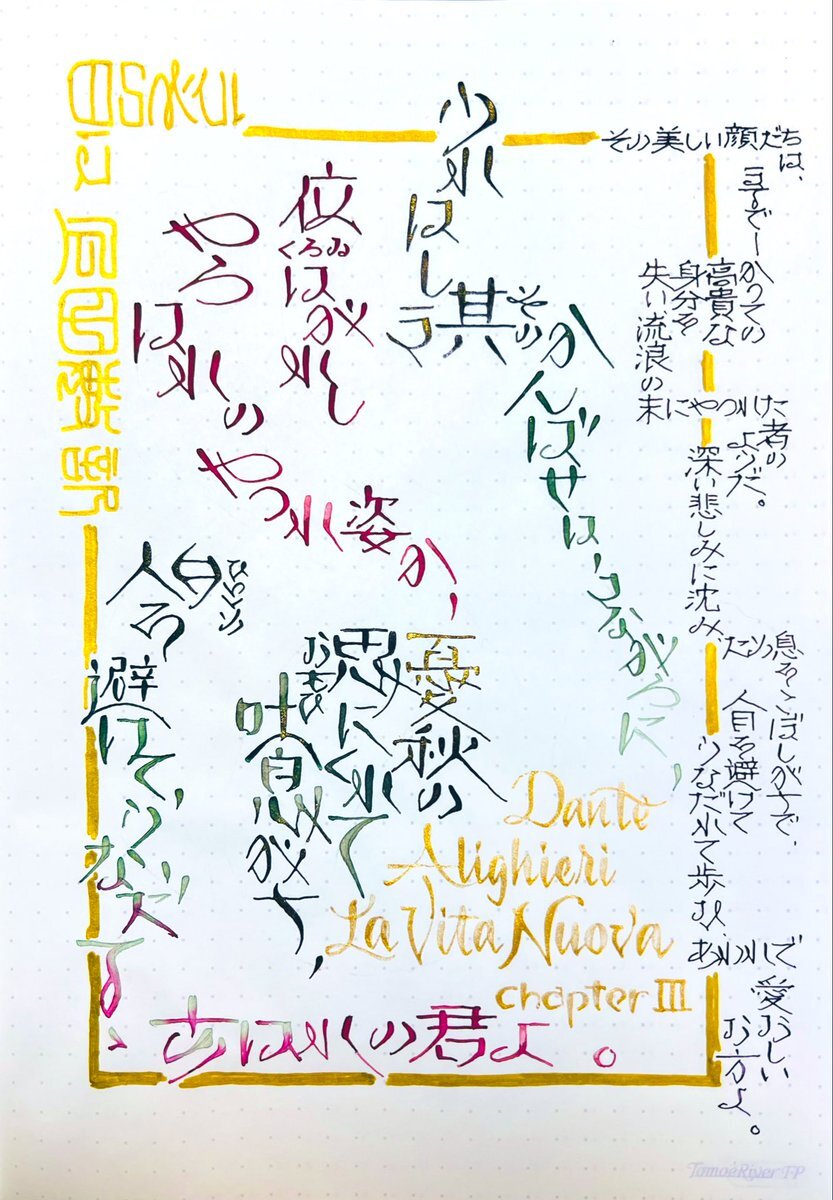 其そのかんばせは、
位くらゐはがれし
やらはれの
やつれ姿か、
憂秋の
思おもひにくれて
吐息がち、
避けて、うなだ
あはれの君よ。
Dante
Alighieri
La Vita Nuova
chapter III
その美しい顔だちは、
まるでーかつての
高貴な
身分を
失い、流浪の
末にやつれた
者の
ようだ。
深い悲しみに沈み、
息をこぼしがちで、
人目を避けて
うなだれて歩む、
あわれで
愛おしい
お方よ。
TomoeRiver FP